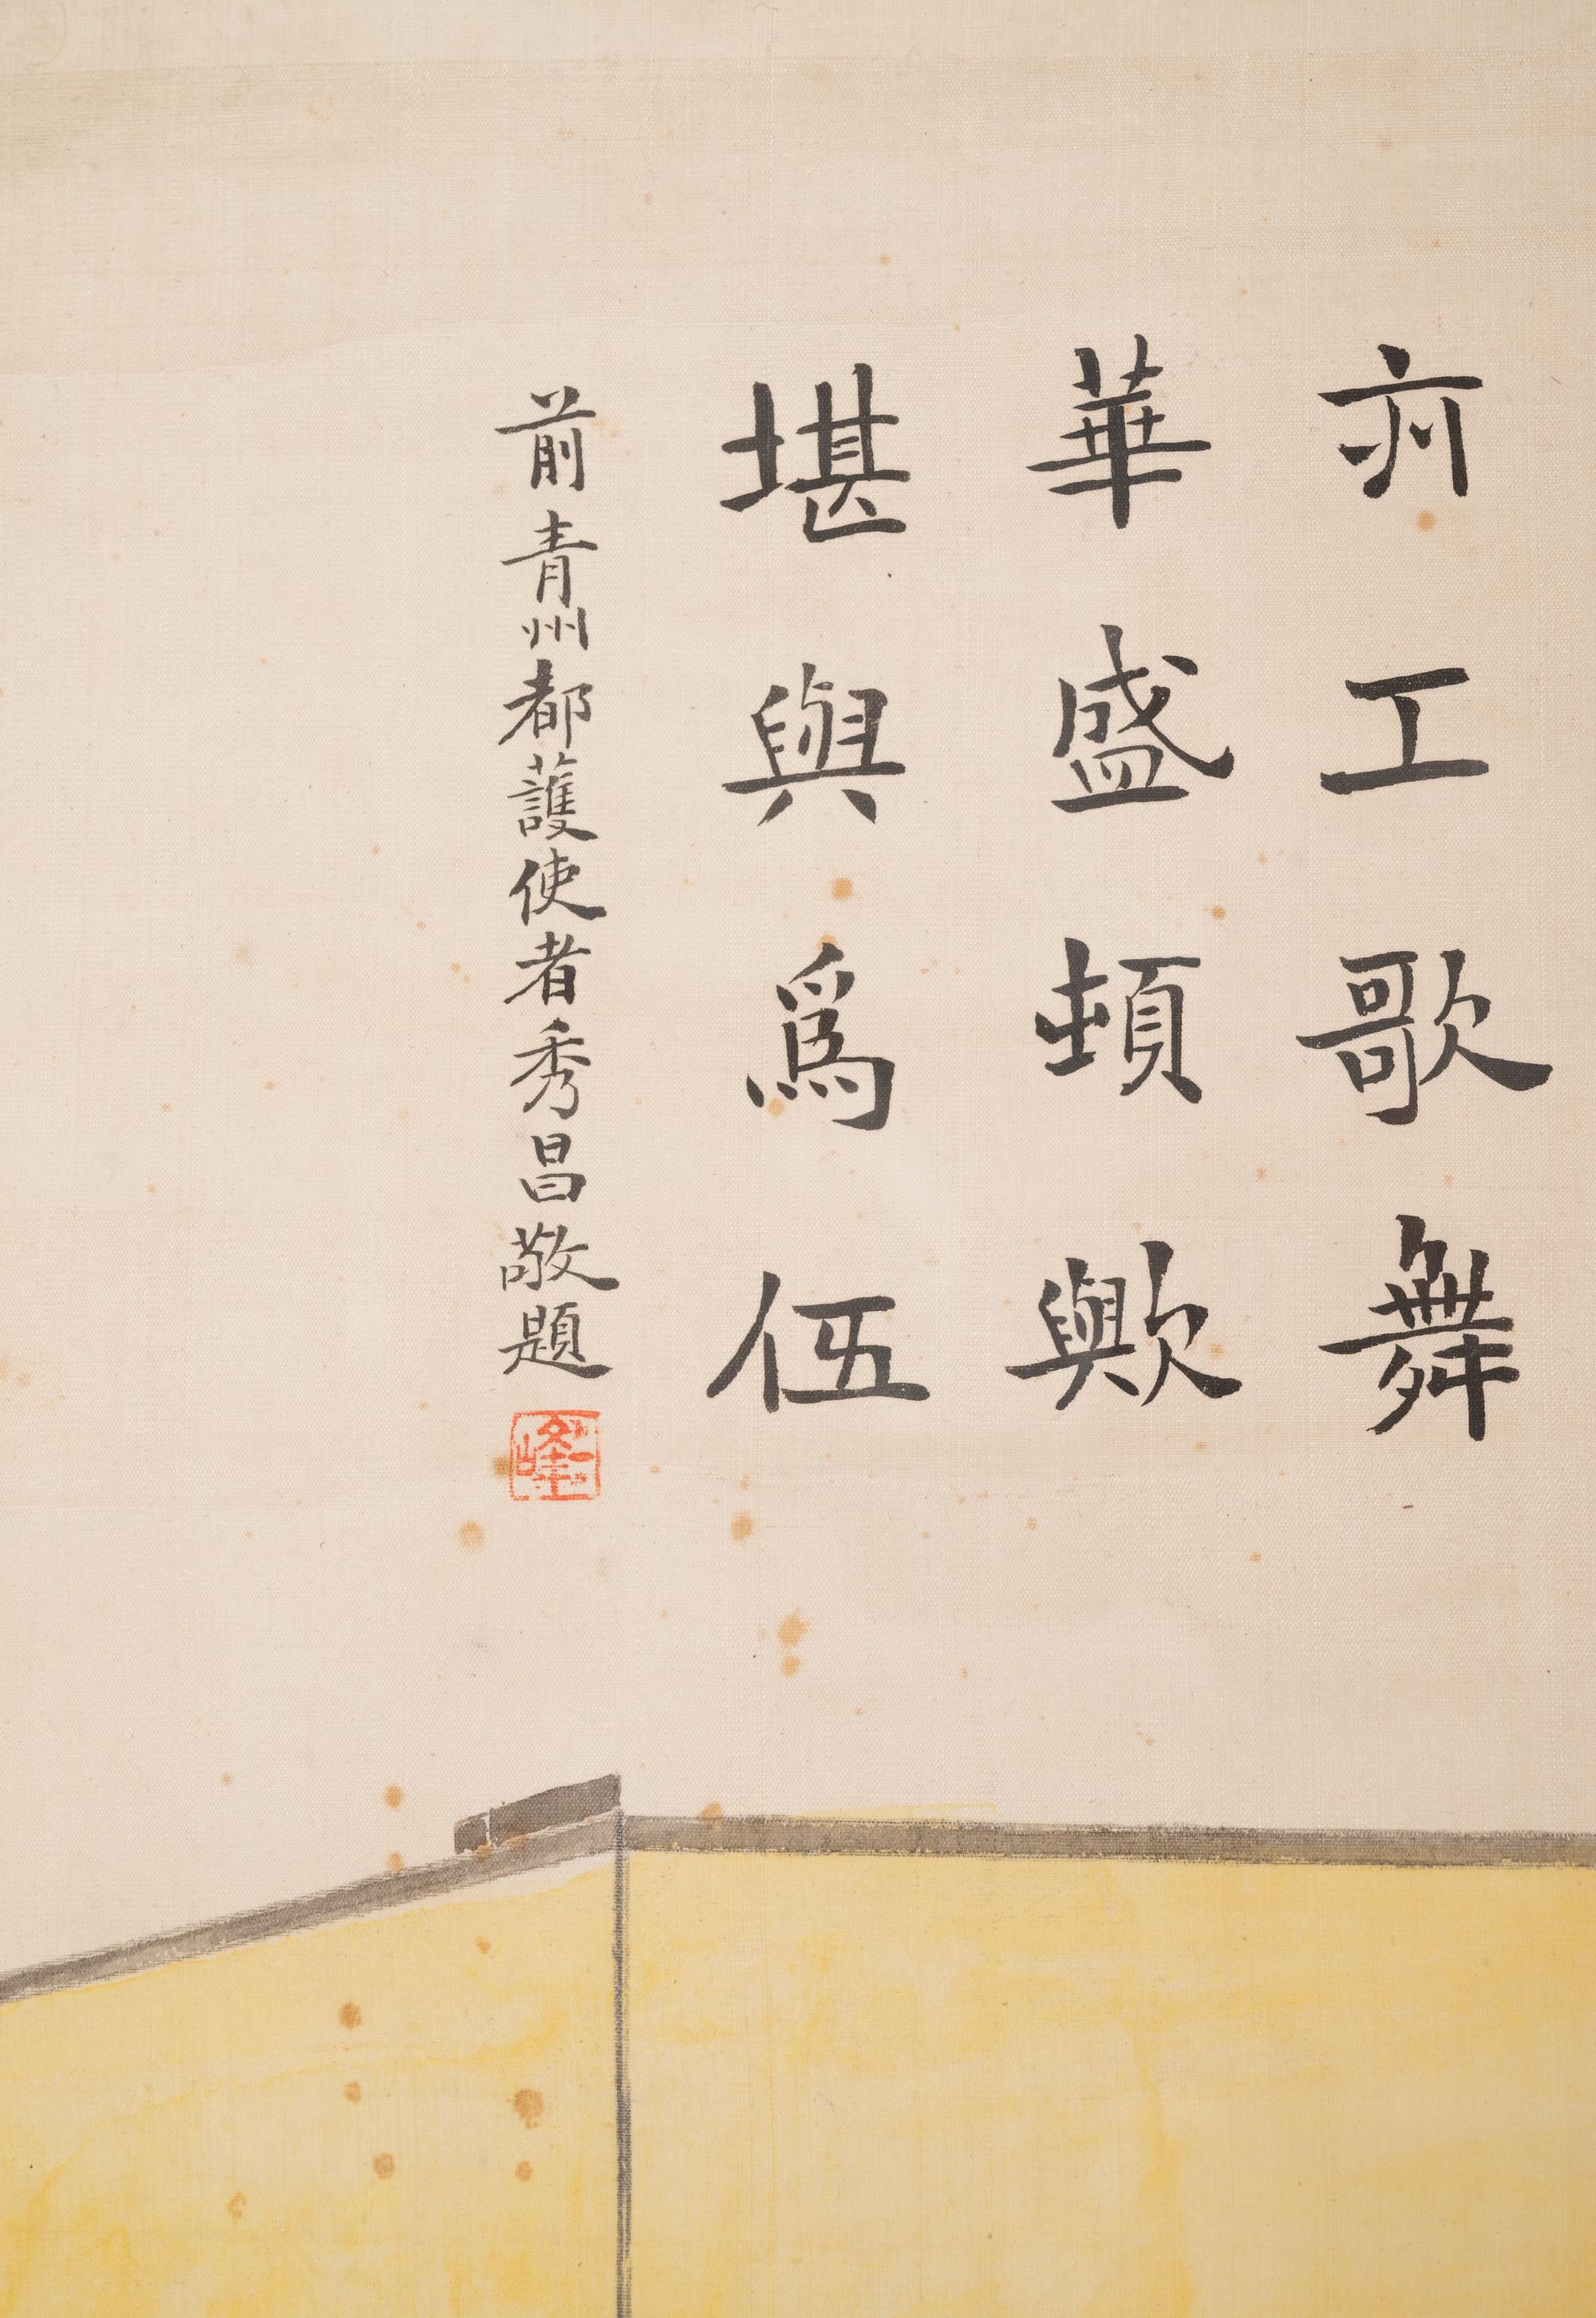 亦工歌舞
華盛頓歟
堪與為伍
前青州都護使者秀昌敬題
峰